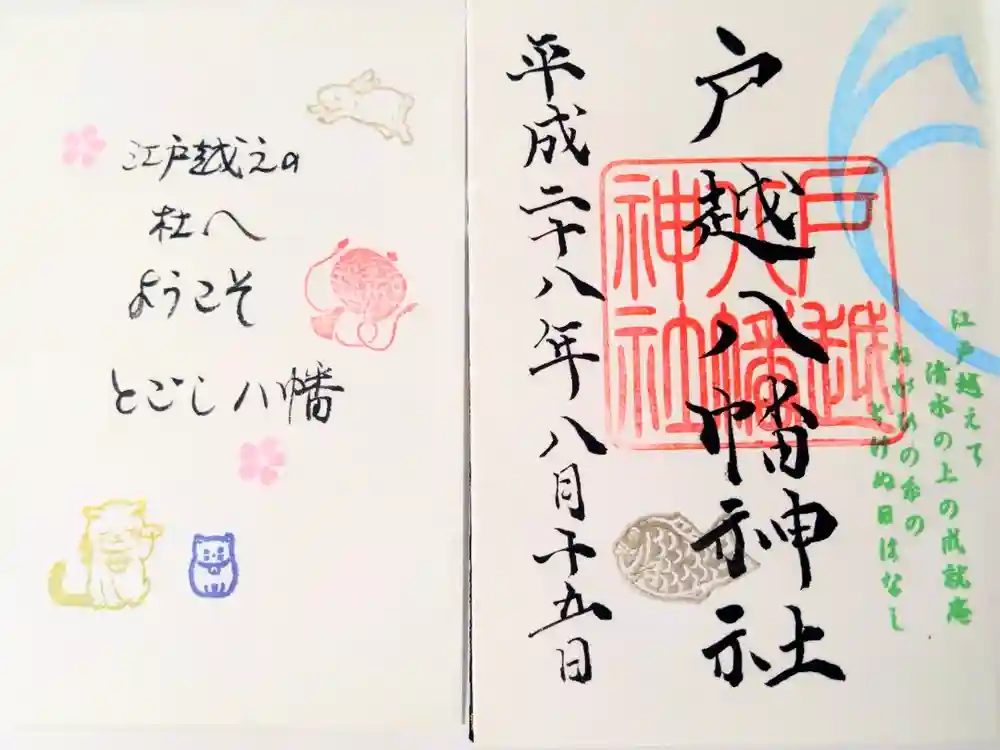 江戸越えの
杜へ
ようこそ
とごし八幡
戸越八幡神社
平成二十八年八月十五日
戸越
八幡
神社
江戸越えて
清水の上の成就庵
ねがひの糸の
とけぬ日はなし